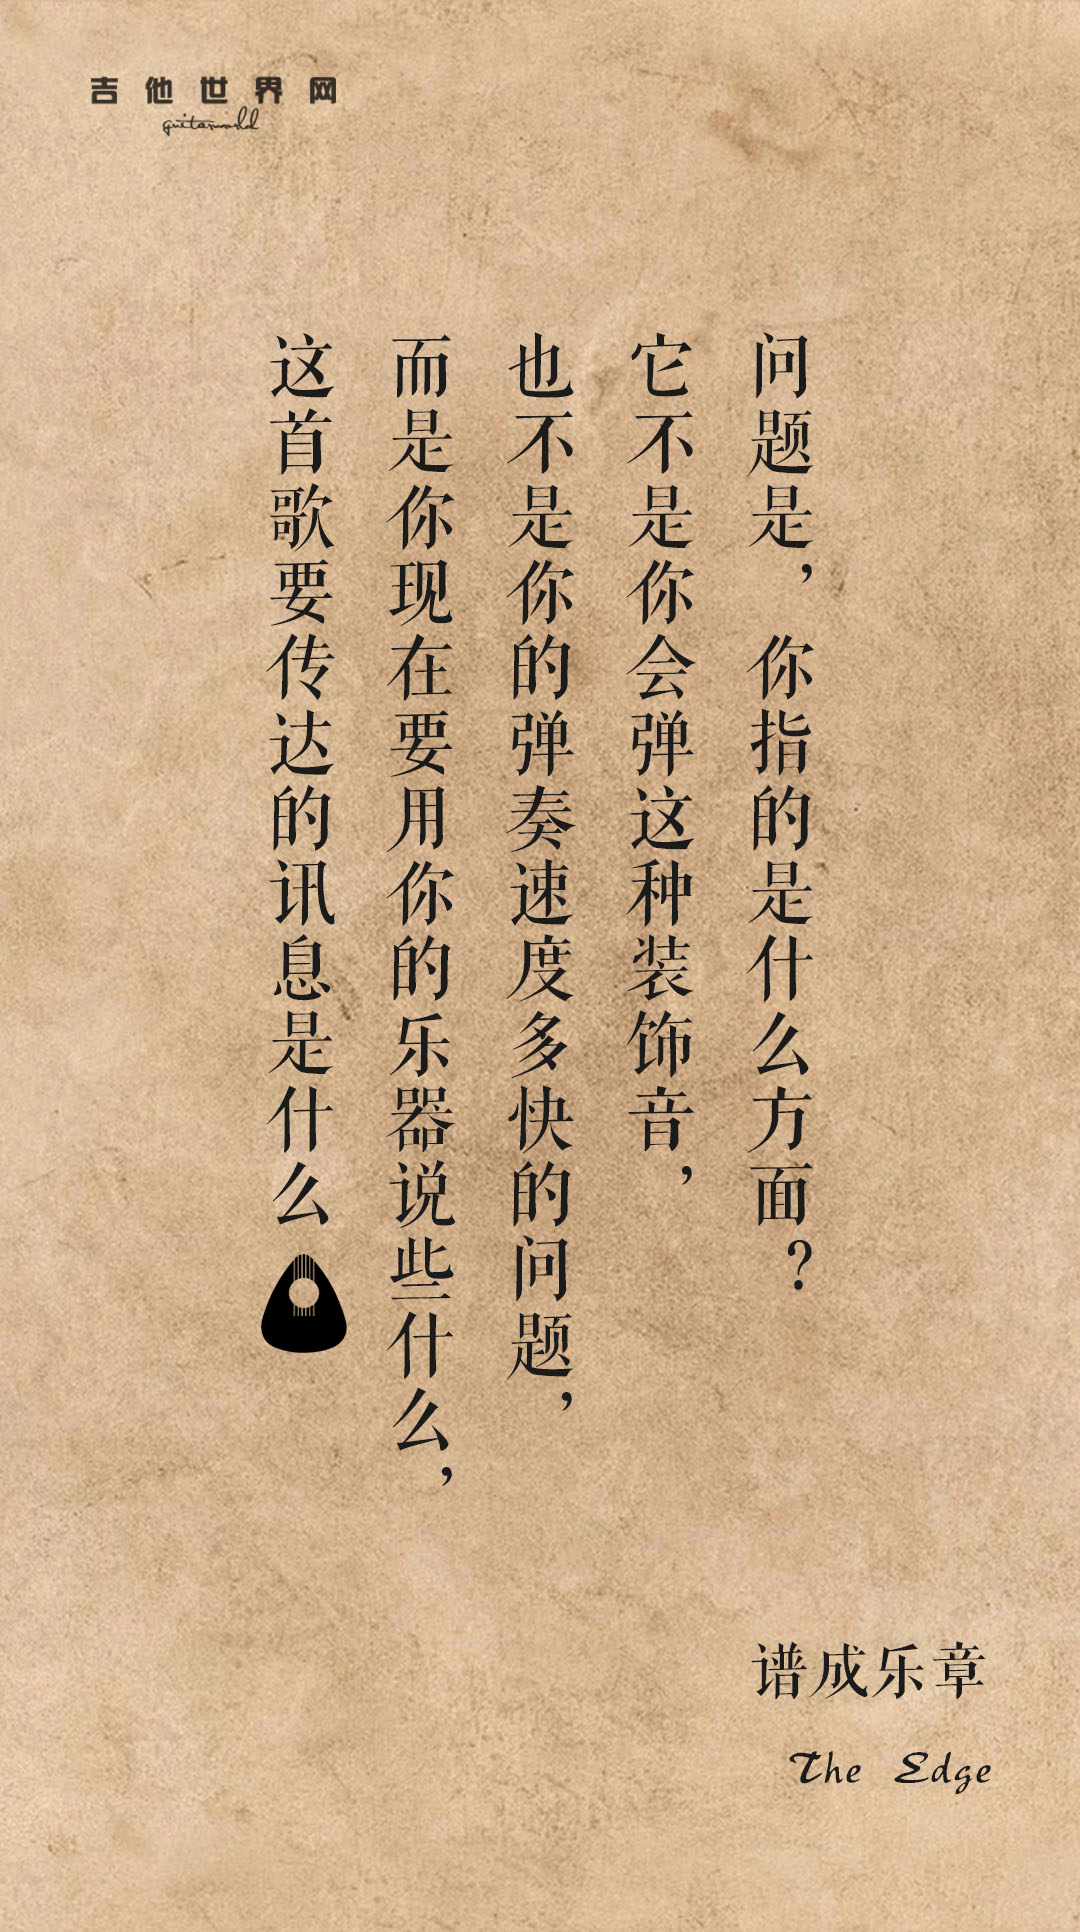 吉他世界网
guitarworld
问题是，你指的是什么方面？
它不是你会弹这种装饰音，
也不是你的弹奏速度多快的问题，
而是你现在要用你的乐器说些什么，
这首歌要传达的讯息是什么
谱成乐章
The Edge